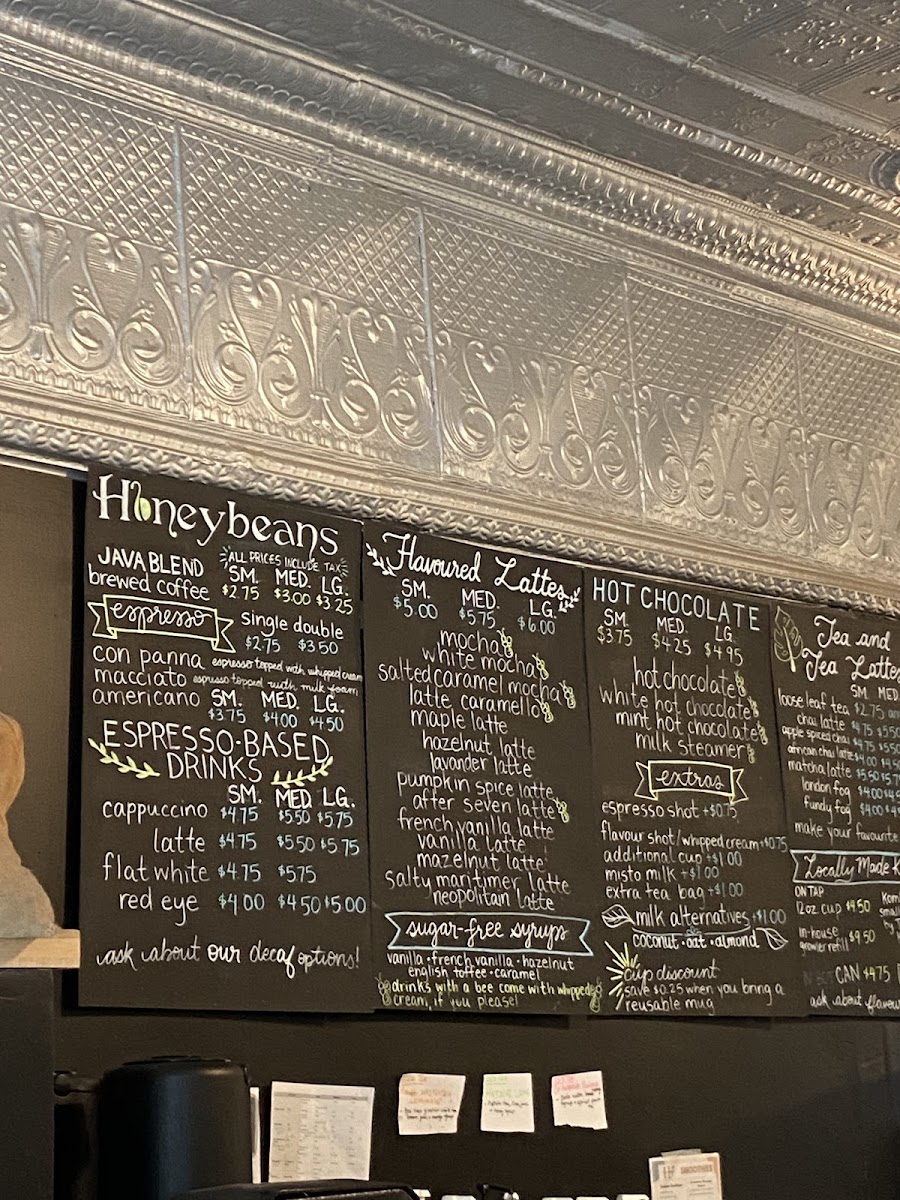 Honeybeans
ALL PRICES INCLUDE TAX
JAVA BLEND
brewed coffee
SM. MED. LG.
$2.75 $3.00 $3.25
espresso
single double
$2.75 $3.50
con panna espresso topped with whipped cream
macciato espresso topped with milk foam
americano SM. MED. LG.
$3.75 $4.00 $4.50
ESPRESSO-BASED
DRINKS
SM. MED. LG.
cappuccino $4.75 $5.50 $5.75
latte $4.75 $5.50 $5.75
flat white $4.75 $5.75
red eye $4.00 $4.50 $5.00
ask about our decaf options!
Flavoured Lattes
SM. MED. LG.
$5.00 $5.75 $6.00
mocha
white mocha
salted caramel mocha
latte caramello
maple latte
hazelnut latte
lavander latte
pumpkin spice latte
after seven latte
french vanilla latte
vanilla latte
mazelnut latte
salty maritimer latte
neopolitain latte
sugar-free syrups
vanilla • french vanilla • hazelnut
english toffee • caramel
drinks with a bee come with whipped
cream, if you please!
HOT CHOCOLATE
SM. MED. LG.
$3.75 $4.25 $4.95
hot chocolate
white hot chocolate
mint hot chocolate
milk steamer
extras
espresso shot +$0.75
flavour shot/whipped cream +$0.75
additional cup +$1.00
misto milk +$1.00
extra tea bag +$1.00
milk alternatives +$1.00
coconut • oat • almond
cup discount
save $0.25 when you bring a
reusable mug
Tea and
Tea Lattes
SM. MED.
loose leaf tea $2.75
chai latte $4.75 $5.50
apple spiced chai $4.75 $5.50
african chai latte $4.00 $4.50
matcha latte $5.50 $5.75
london fog $4.00 $4.50
fundy fog $4.00
make your favourite
Locally Made
ON TAP
12oz. cup $4.50
in-house
growler refill $9.50
CAN $4.75
ask about flavou
SMOOTHIES